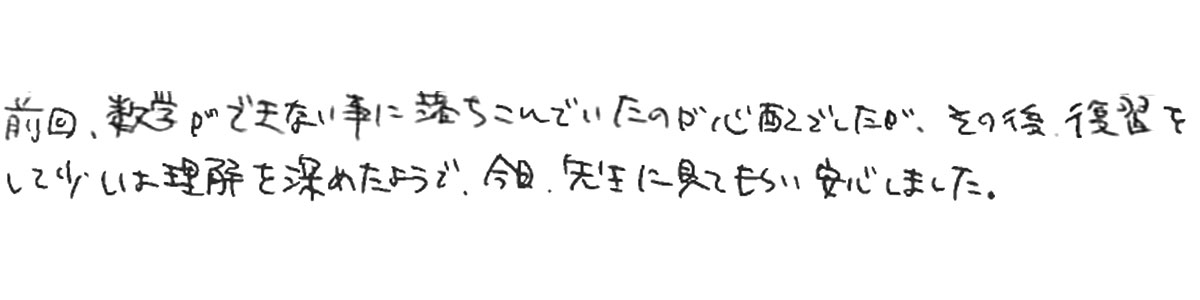 前回、数学ができない事に落ちこんでいたのが心配でしたが、その後、復習を
して少しは理解を深めたようで、今日、先生に見てもらい安心しました。